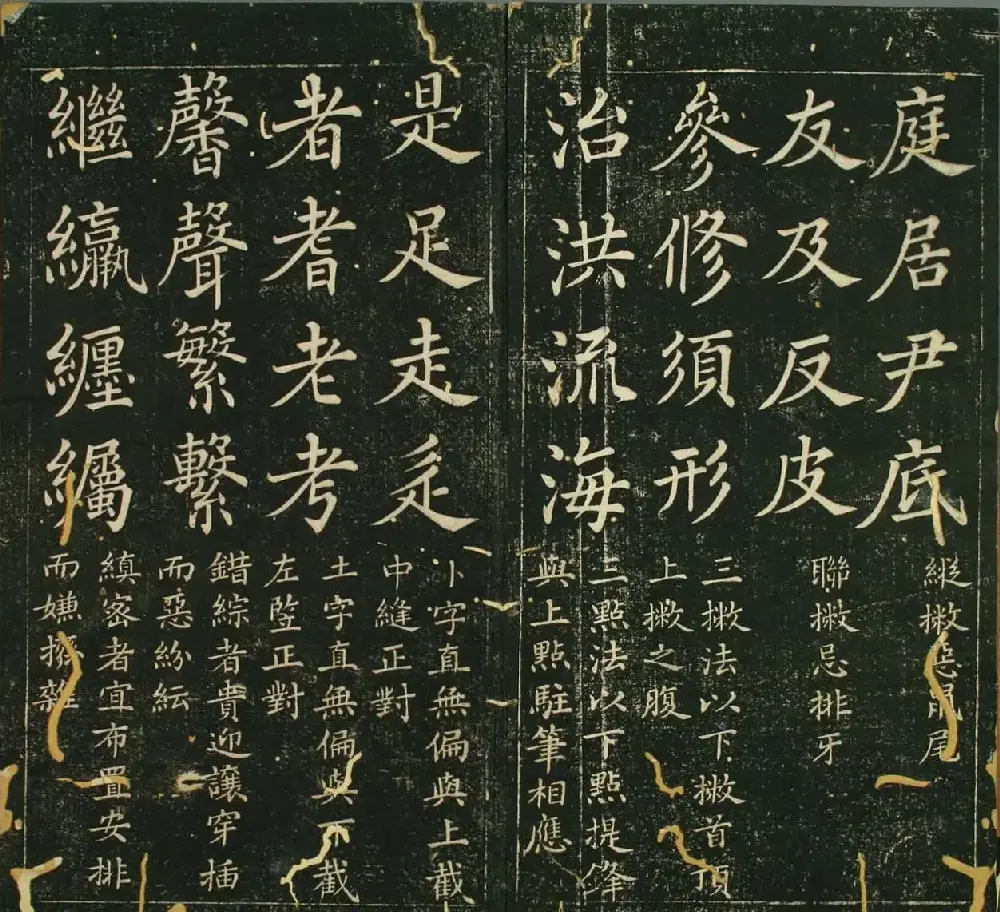 庭居尹底
縱撇惡鼠尾
友及反皮
聯撇忌排牙
參修須形
三撇法以下撇首頂
上撇之腹
治洪流海
三點法以下點提鋒
與上點駐筆相應
是足走辵
卜字直無偏與上截
中縫正對
者耆老考
土字直無偏與下截
左竪正對
馨聲繁繫
錯綜者貴迎讓穿插
而惡紛紜
繼纚纏纈
縝密者宜布置安排
而嫌撥雜